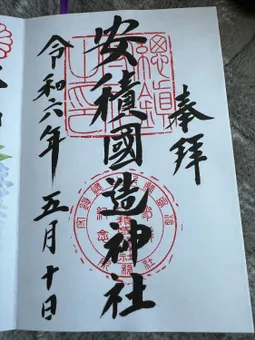 奉拝
安積國造神社
令和六年 五月十日